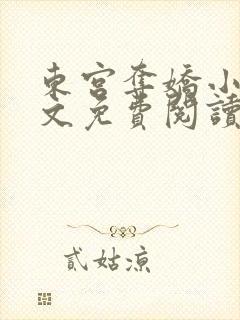 東宮奪嬌小
文免費閱讀
貳姑涼